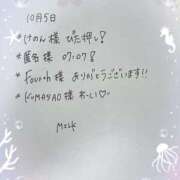 10月5日
*けのん様 ぴた押し!
*匿名様 07:07!
*Fourth様 ありがとうございます!!
*KUMASAO様 おーい♡
Milk